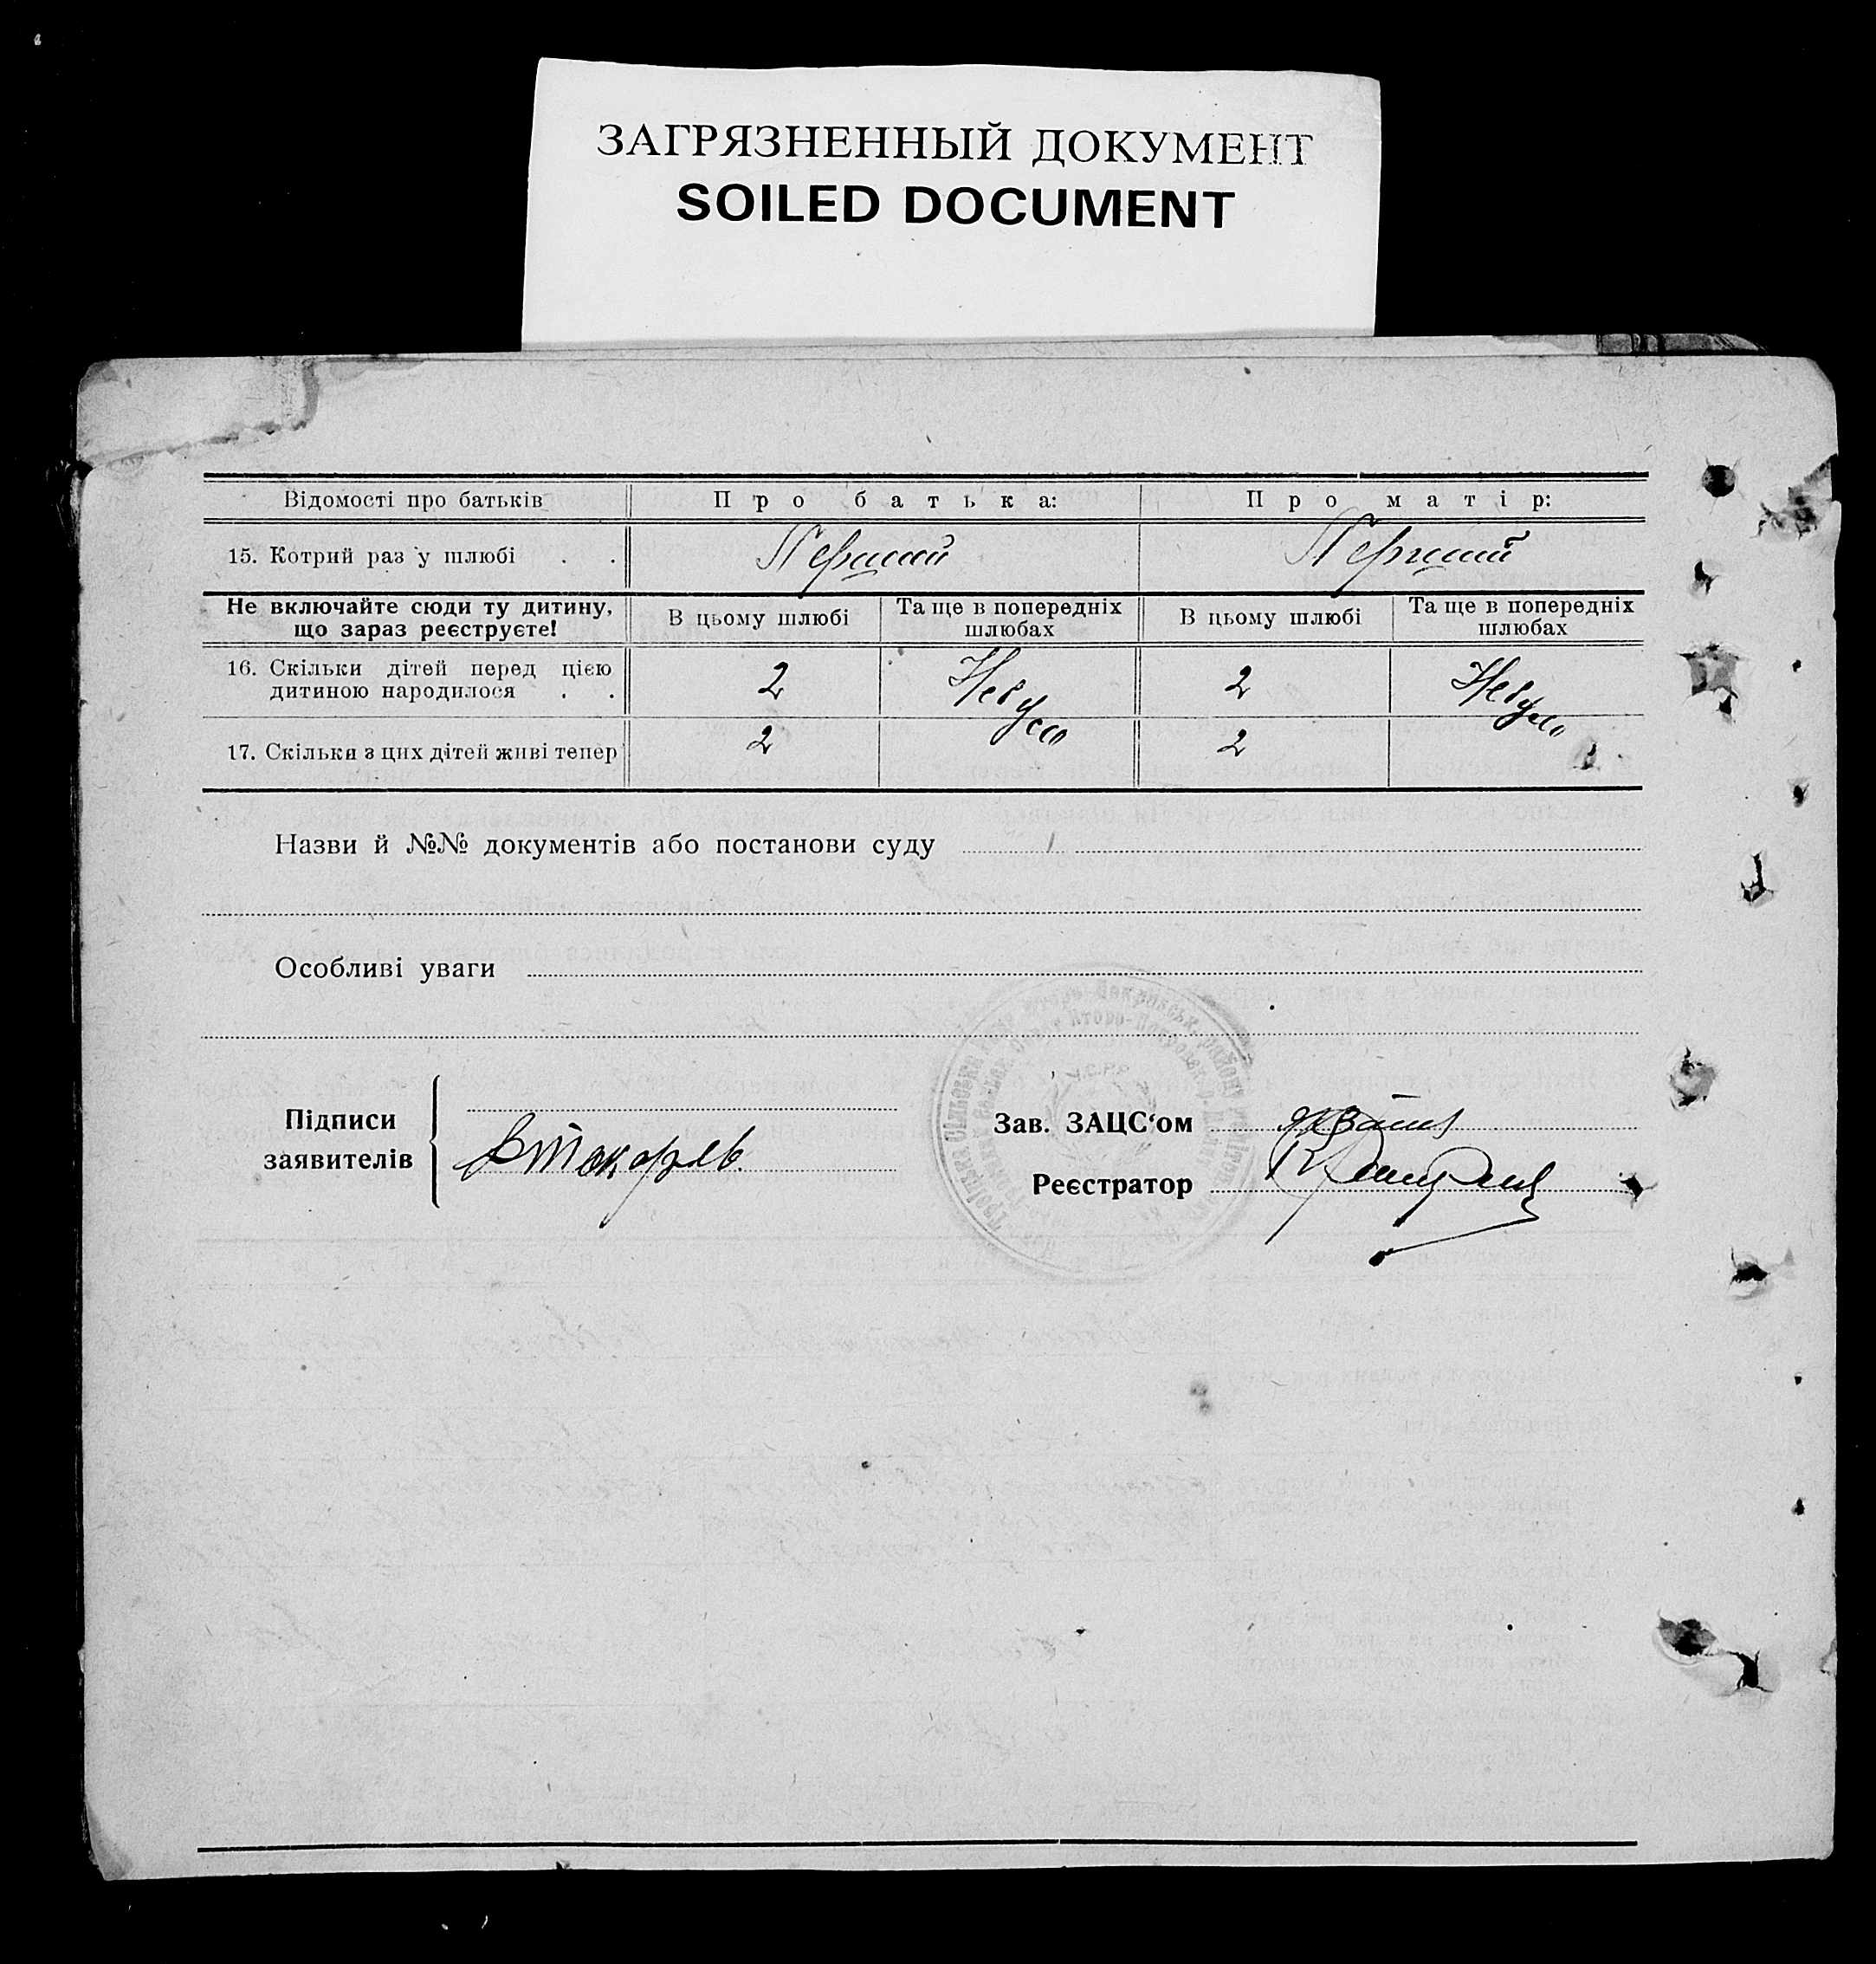 ЗАГРЯЗНЕННЫЙ ДОКУМЕНТ
SOILED DOCUMENT
Відомості про батьків Про батька: Про матір:
15. Котрий раз у шлюбі . . Перший Перший
Не включайте сюди ту дитину, що зараз реєструєте! В цьому шлюбі Та ще в попередніх шлюбах В цьому шлюбі Та ще в попередніх шлюбах
16. Скільки дітей перед цією
дитиною народилося . . 2 Небуло 2 Небуло
17. Скільки з цих дітей живі тепер 2 2
Назви й №№ документів або постанови суду
Особливі уваги
Підписи
заявителів
Зав. ЗАЦС‘ом
Реєстратор
У.С.Р.Р.